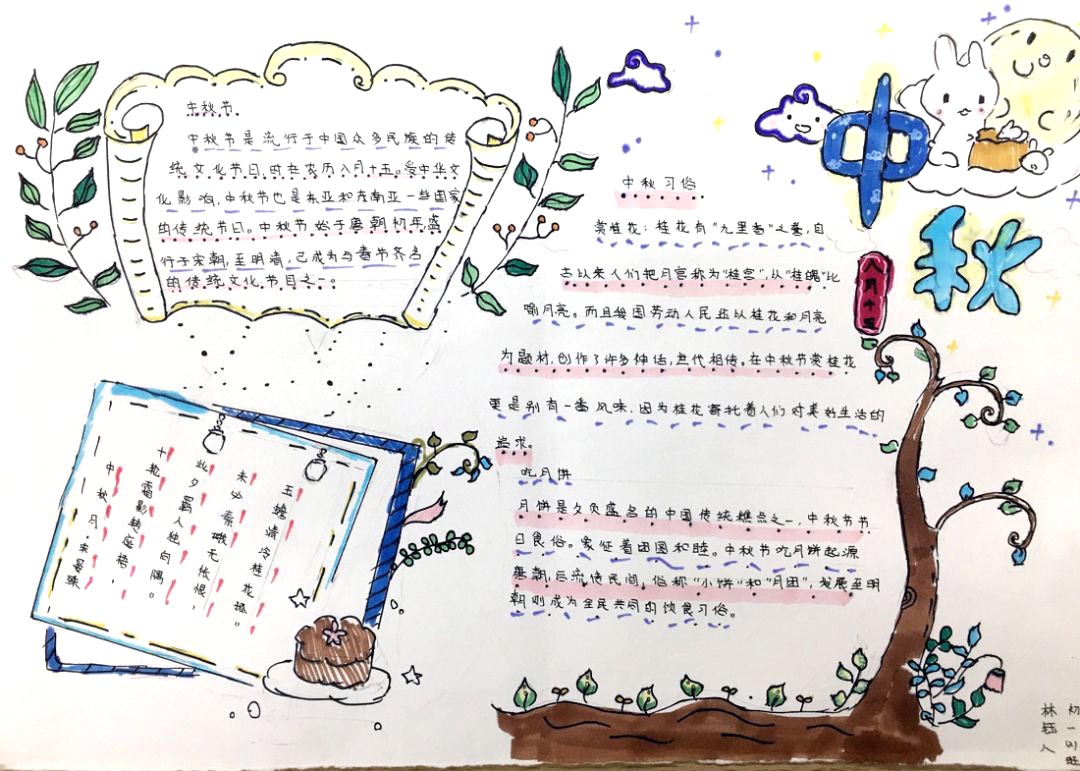 中秋节
中秋节是流行于中国众多民族的传
统文化节日,时在农历八月十五。受中华文
化影响,中秋节也是东亚和东南亚一些国家
的传统节日。中秋节始于唐朝初年盛
行于宋朝,至明清,已成为与春节齐名
的传统文化节目之一。
中秋
八月十五
中秋习俗
赏桂花:桂花有“九里香”之誉,自
古以来人们把月亮称为“桂宫”,从“桂魄”比
喻月亮。而且我国劳动人民还以桂花和月亮
为题材,创作了许多神话,世代相传。在中秋节赏桂花
更是别有一番风味,因为桂花寄托着人们对美好生活的
追求。
吃月饼
月饼是久负盛名的中国传统糕点之一,中秋节节
日食俗。象征着团圆和睦。中秋节吃月饼起源
唐朝,后流传民间,俗称“小饼”和“月团”,发展至明
朝则成为全民共同的饮食习俗。
玉蟾清冷桂花孤。
未必素娥无怅恨,
此夕羁人独向隅。
十轮霜影转庭梧,
中秋月·宋晏殊
初一
班
林钰人